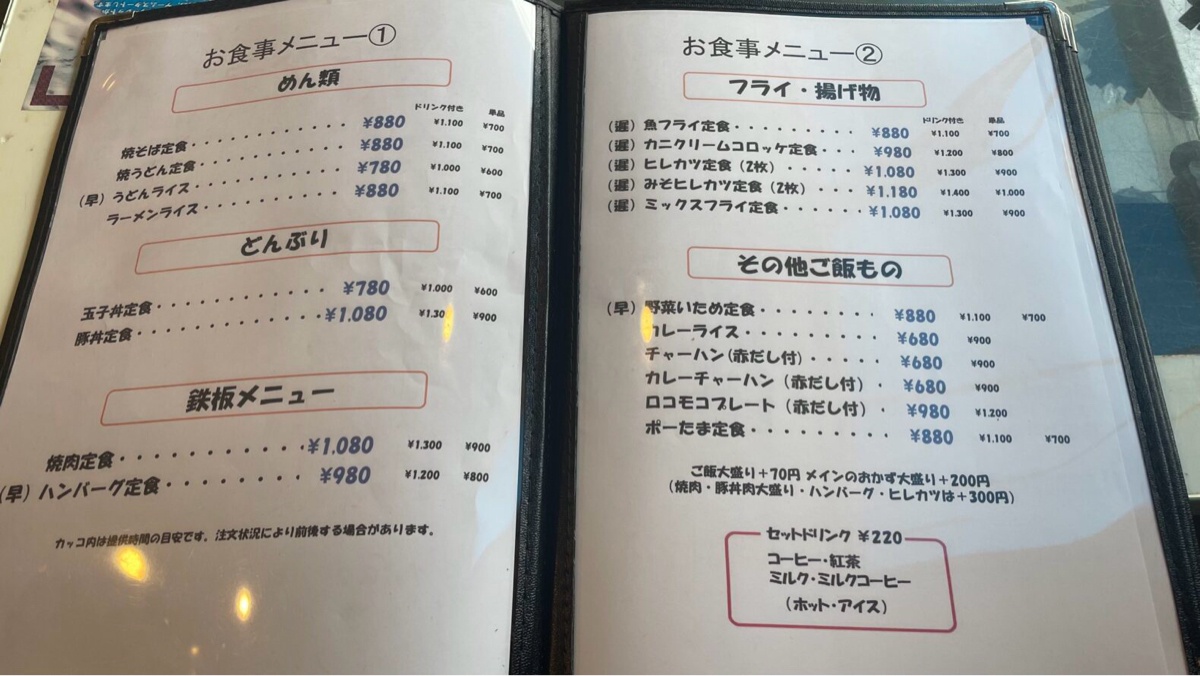 お食事メニュー①
めん類
ドリンク付き 単品
焼そば定食・・・・・・・・・・・ ¥880 ¥1.100 ¥700
焼うどん定食・・・・・・・・・・ ¥880 ¥1.100 ¥700
(早) うどんライス・・・・・・・・・・ ¥780 ¥1.000 ¥600
ラーメンライス・・・・・・・・・ ¥880 ¥1.100 ¥700
どんぶり
玉子丼定食・・・・・・・・・・・ ¥780 ¥1.000 ¥600
豚丼定食・・・・・・・・・・・・ ¥1.080 ¥1.30 ¥900
鉄板メニュー
焼肉定食・・・・・・・・・・・ ¥1.080 ¥1.300 ¥900
(早) ハンバーグ定食・・・・・・・・・ ¥980 ¥1.200 ¥800
カッコ内は提供時間の目安です。注文状況により前後する場合があります。
お食事メニュー②
フライ・揚げ物
ドリンク付き 単品
(遅) 魚フライ定食・・・・・・・・・ ¥880 ¥1.100 ¥700
(遅) カニクリームコロッケ定食・・・ ¥980 ¥1.200 ¥800
(遅) ヒレカツ定食（2枚）・・・・・・ ¥1.080 ¥1.300 ¥900
(遅) みそヒレカツ定食（2枚）・・・ ¥1.180 ¥1.400 ¥1.000
(遅) ミックスフライ定食・・・・・・・ ¥1.080 ¥1.300 ¥900
その他ご飯もの
(早) 野菜いため定食・・・・・・・・ ¥880 ¥1.100 ¥700
カレーライス・・・・・・・・・ ¥680 ¥900
チャーハン（赤だし付）・・・・・ ¥680 ¥900
カレーチャーハン（赤だし付）・ ¥680 ¥900
ロコモコプレート（赤だし付）・ ¥980 ¥1.200
ポーたま定食・・・・・・・・・ ¥880 ¥1.100 ¥700
ご飯大盛り＋70円 メインのおかず大盛り＋200円
（焼肉・豚丼肉大盛り・ハンバーグ・ヒレカツは＋300円）
セットドリンク ¥220
コーヒー・紅茶
ミルク・ミルクコーヒー
（ホット・アイス）